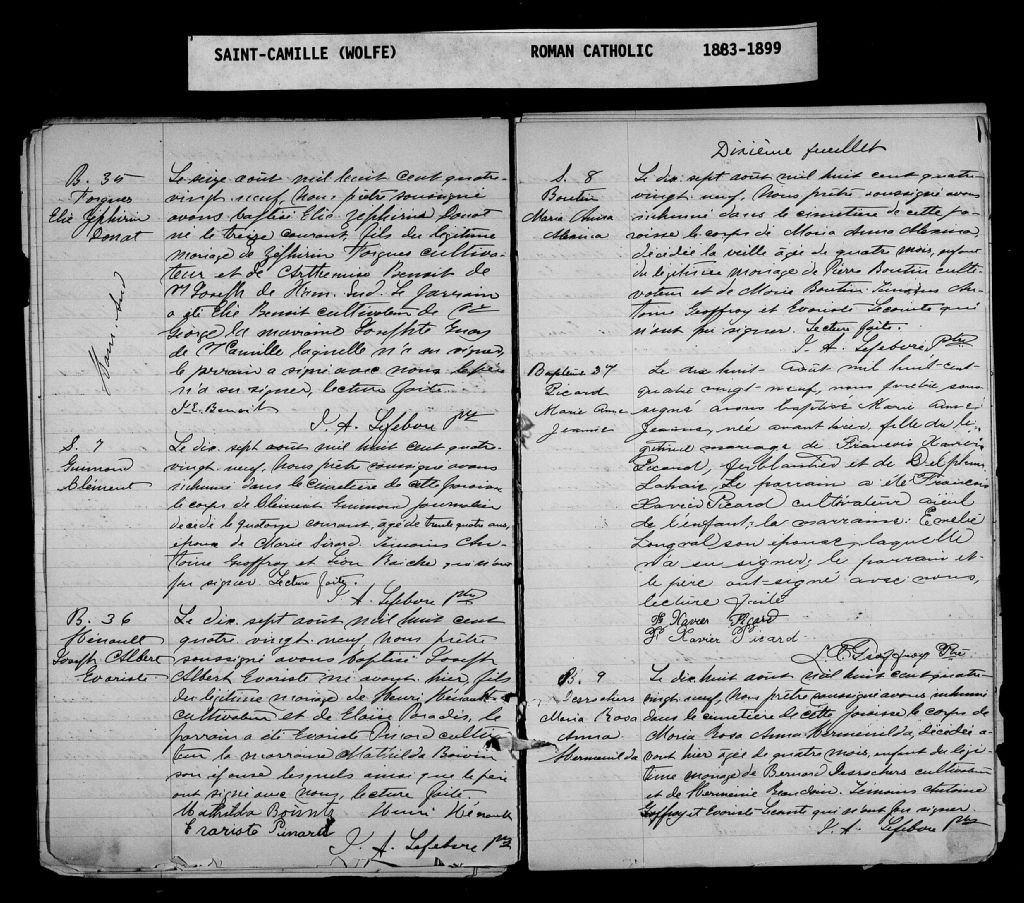 SAINT-CAMILLE (WOLFE) ROMAN CATHOLIC 1883-1899
B. 35
Forgues
Elie Zephirin
Donat
Ham-Sud
Le seize août mil huit cent quatre-
vingt-neuf, Nous prêtre soussigné
avons baptisé Elie Zephirin Donat
né le treize courant, fils du légitime
mariage de Zéphirin Forgues cultiva-
teur et de Arthemise Benoit de
St Joseph de Ham-Sud. Le parrain
a été Elie Benoit cultivateur de St
George la marraine Josephte
de St Camille laquelle n'a su signer,
le parrain a signé avec nous le père
n'a su signer, lecture faite.
J. E. Benoit
J. A. Lefebvre ptre
S. 7
Guimond
Clément
Le dix-sept août mil huit cent quatre-
vingt-neuf, Nous prêtre soussigné avons
inhumé dans le cimetière de cette paroisse
le corps de Clément Guimond journalier
décédé le quatorze courant, âgé de trente quatre ans,
époux de Marie Sirard. Témoins An-
toine Geoffroy et Léon qui n'ont
pu signer. Lecture faite.
J. A. Lefebvre ptre
B. 36
Hénault
Joseph Albert
Evariste
Le dix-sept août mil huit cent
quatre-vingt-neuf Nous prêtre
soussigné avons baptisé Joseph
Albert Evariste né avant hier, fils
du légitime mariage de Henri Hénault
cultivateur et de Eloïse Paradis, le
parrain a été Evariste Pinard culti-
teur la marraine Mathilda Boivin
son épouse lesquels ainsi que le père
ont signé avec nous, lecture faite.
Mathilda Henri Hénault
Evariste Pinard
J. A. Lefebvre ptre
Dixième feuillet
S. 8
Boutin
Maria Anna
Le dix-sept août mil huit cent quatre
vingt-neuf, Nous prêtre soussigné avons
inhumé dans le cimetière de cette pa-
roisse le corps de Maria Anna
décédée la veille âgée de quatre mois, enfant
du légitime mariage de Pierre Boutin culti-
vateur et de Marie Boutin. Témoins An-
toine Geoffroy et Evariste Lecomte qui
n'ont pu signer. Lecture faite.
J. A. Lefebvre, ptre
Baptême 37
Picard
Marie Anne
Jeanne
Le dix-huit août mil huit-cent
quatre vingt-neuf, nous prêtre sous-
signé avons baptisé Marie Anne
Jeanne, née avant hier, fille du lé-
gitime mariage de François Xavier
Picard, ferblantier et de Delphine
Lahaie. Le parrain a été François
Xavier Picard cultivateur aïeul
de l'enfant; la marraine: Emélie
Longval son épouse, laquelle
n'a su signer; le parrain et
le père ont signé avec nous,
lecture faite
F Xavier Picard
F Xavier Picard
Ptre
B. 9
Desrochers
Maria Rosa
Anna
Hermenilda
Le dix-huit août mil huit cent quatre-
vingt-neuf, Nous prêtre soussigné avons inhumé
dans le cimetière de cette paroisse le corps de
Maria Rosa Anna Hermenilda, décédée a-
vant hier âgée de quatre mois, enfant du légi-
time mariage de Bernard Desrochers cultivateur
et de Herménie Beaudoin. Témoins Antoine
Geoffroy et Evariste Lecomte qui n'ont pu signer
J. A. Lefebvre ptre